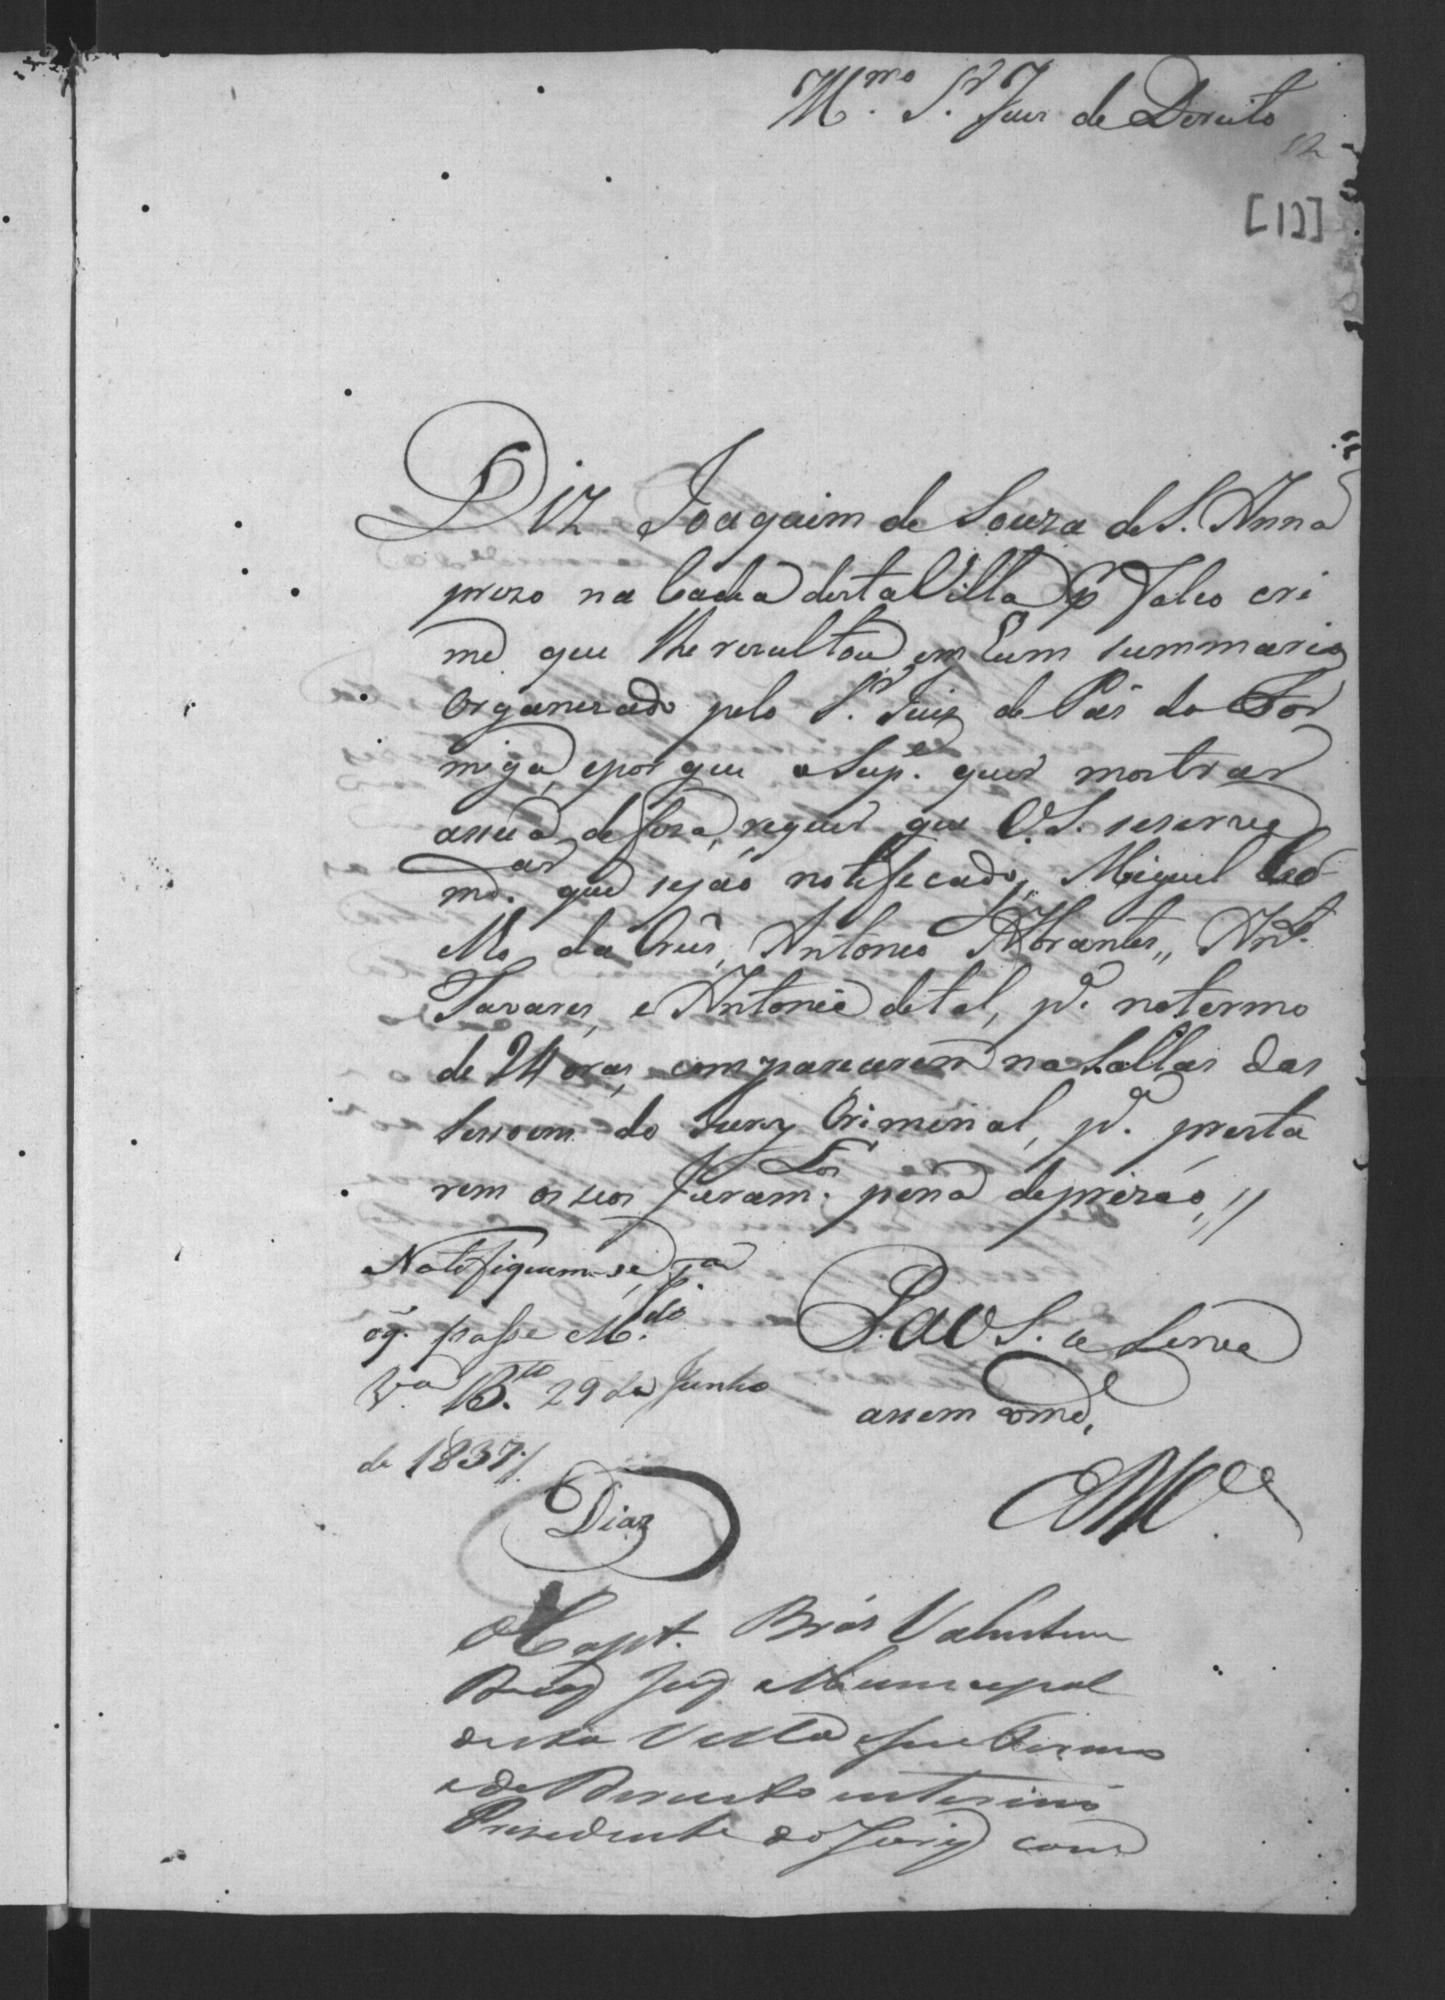 Mmo. Sr. Juis de Dereito
12
[12]
Diz Joaquim de Souza de S. Anna
prezo na Cadea desta Villa pr. falço cri
me que lhe rezultou em hum summario
Organezado pelo Sr. Juiz de Pás da For
miga, epor que o Supe. quer mostrar
asua defeza, requer que V.S. seserva
mdar. que sejão notifecados, Miguel
da Crus, Antoneo Abrantes, Anto.
Tavares, e Antoneo detal, pa. notermo
de 24 oras, compareserem na Sallas das
Sessoens do Jury Criminal, pa. presta
rem os seos Juramtos. pena deprizão, //
Notifiquem-se, pa.
oq. passe Mdo.
Va. Bta. 29 de Junho
de 1837 /.
Diaz
P a V S. se Serva
assem omde.
E R Mce.
O Capt. Brás Valentim
Juiz Municipal
desta Villa eseu Termo
ede Dereito interino
Presedente do Jury com